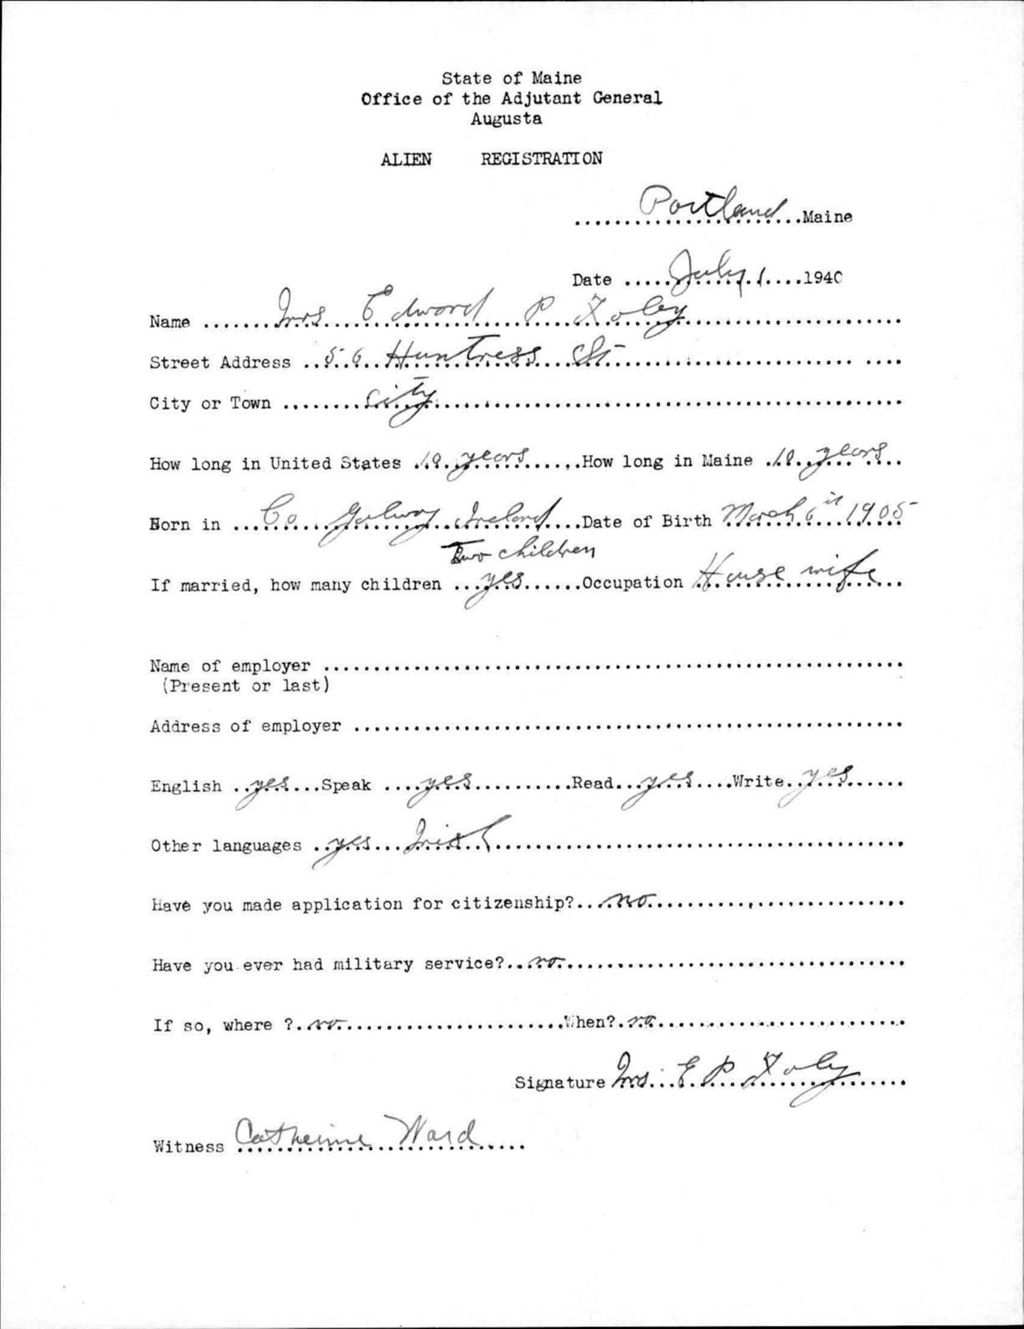 State of Maine
Office of the Adjutant General
Augusta
ALIEN REGISTRATION
Portland Maine
Date July 1 1940
Name Mrs Edward P Foley
Street Address 56 Huntress St
City or Town City
How long in United States years How long in Maine years
Born in Co. Galway Ireland Date of Birth March 6 1905
Two children
If married, how many children yes Occupation House wife
Name of employer
(Present or last)
Address of employer
English yes Speak yes Read yes Write yes
Other languages yes Irish
Have you made application for citizenship? no
Have you ever had military service? no
If so, where ? no When? no
Signature Mrs. E. P. Foley
Witness Catherine Ward